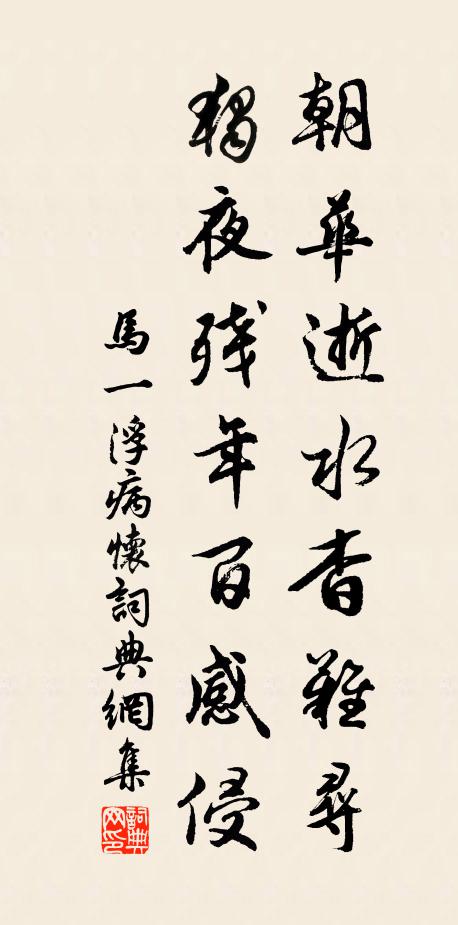 朝華逝水杳難尋
獨夜殘年百感侵
馬一浮病懷詞典網集
詞典網印